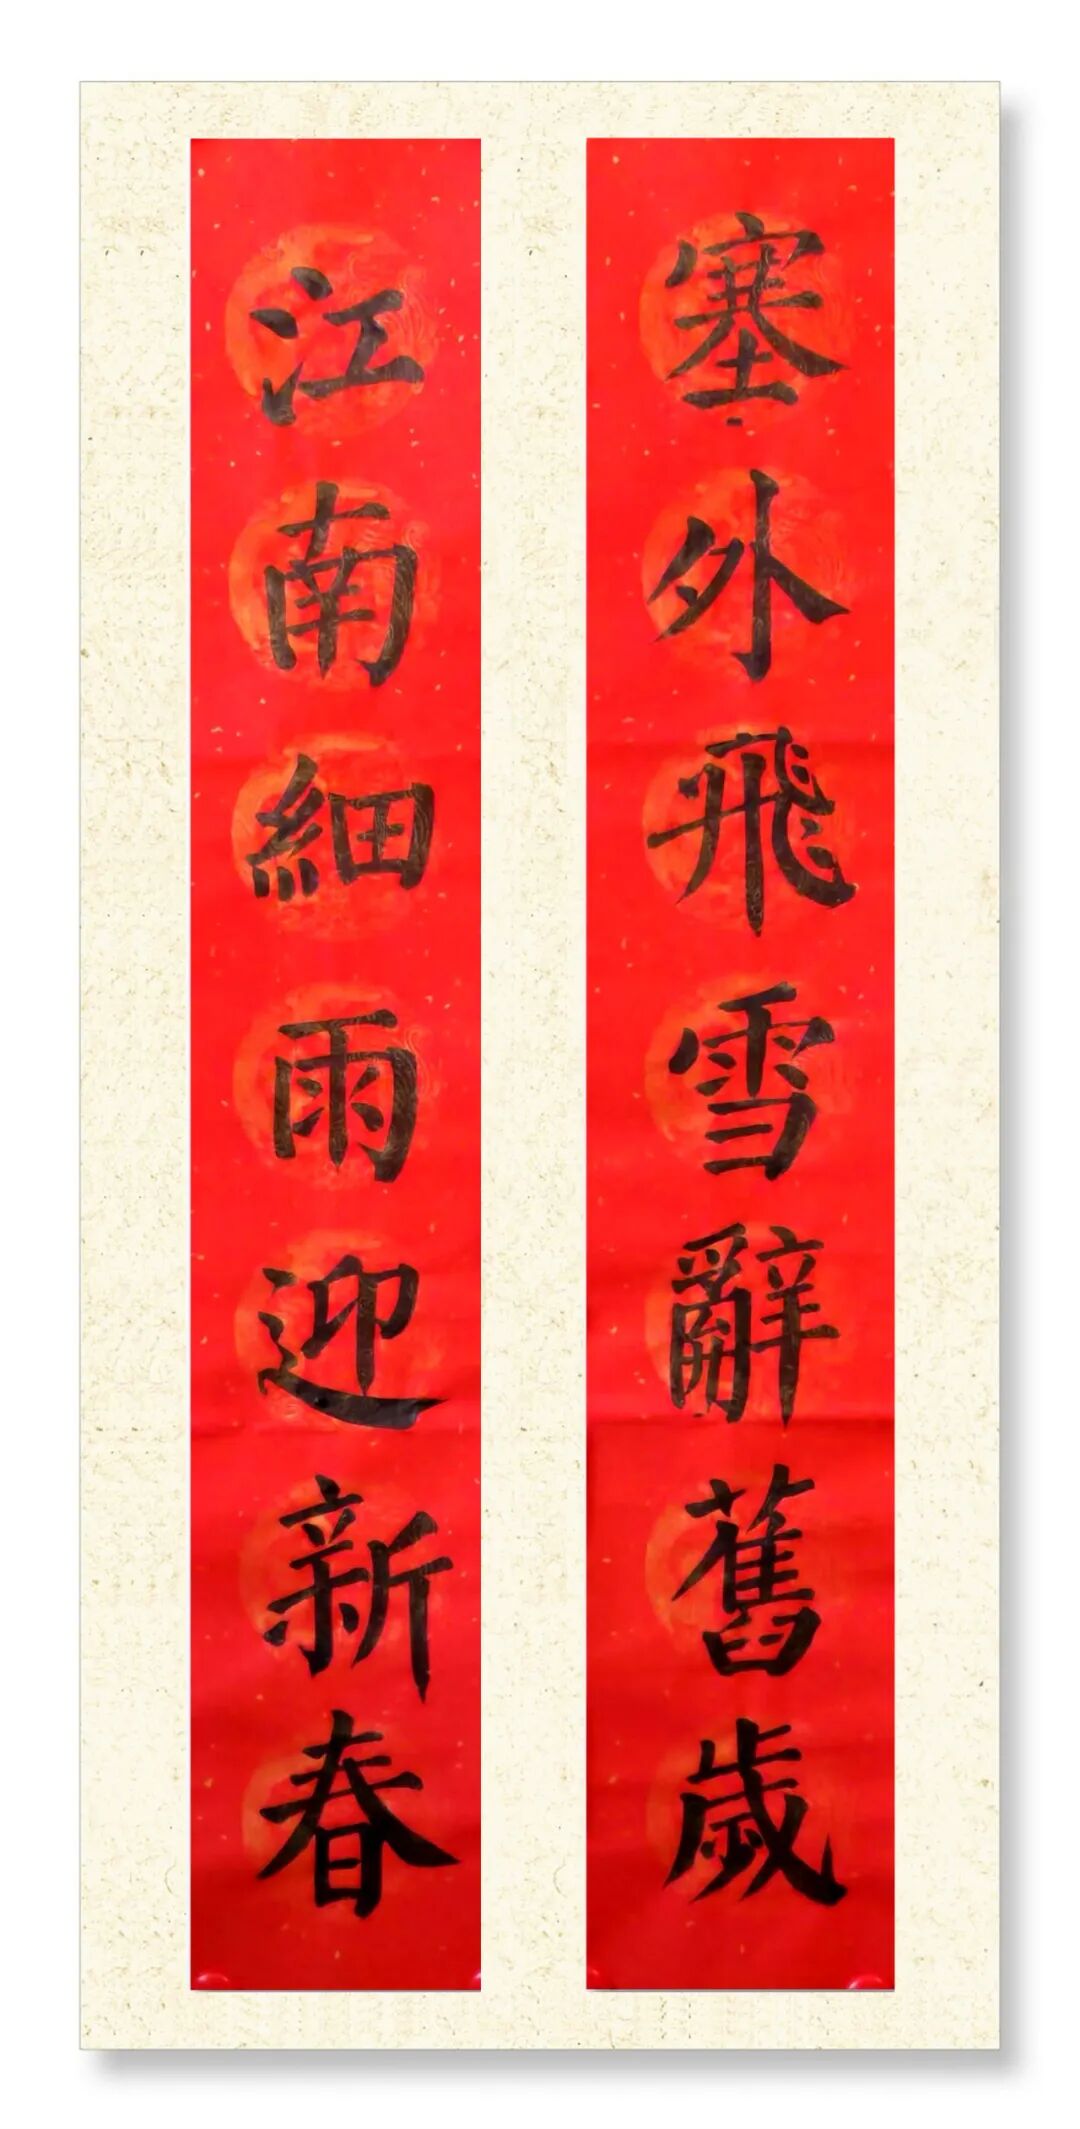 塞外飛雪辭舊歲
江南細雨迎新春